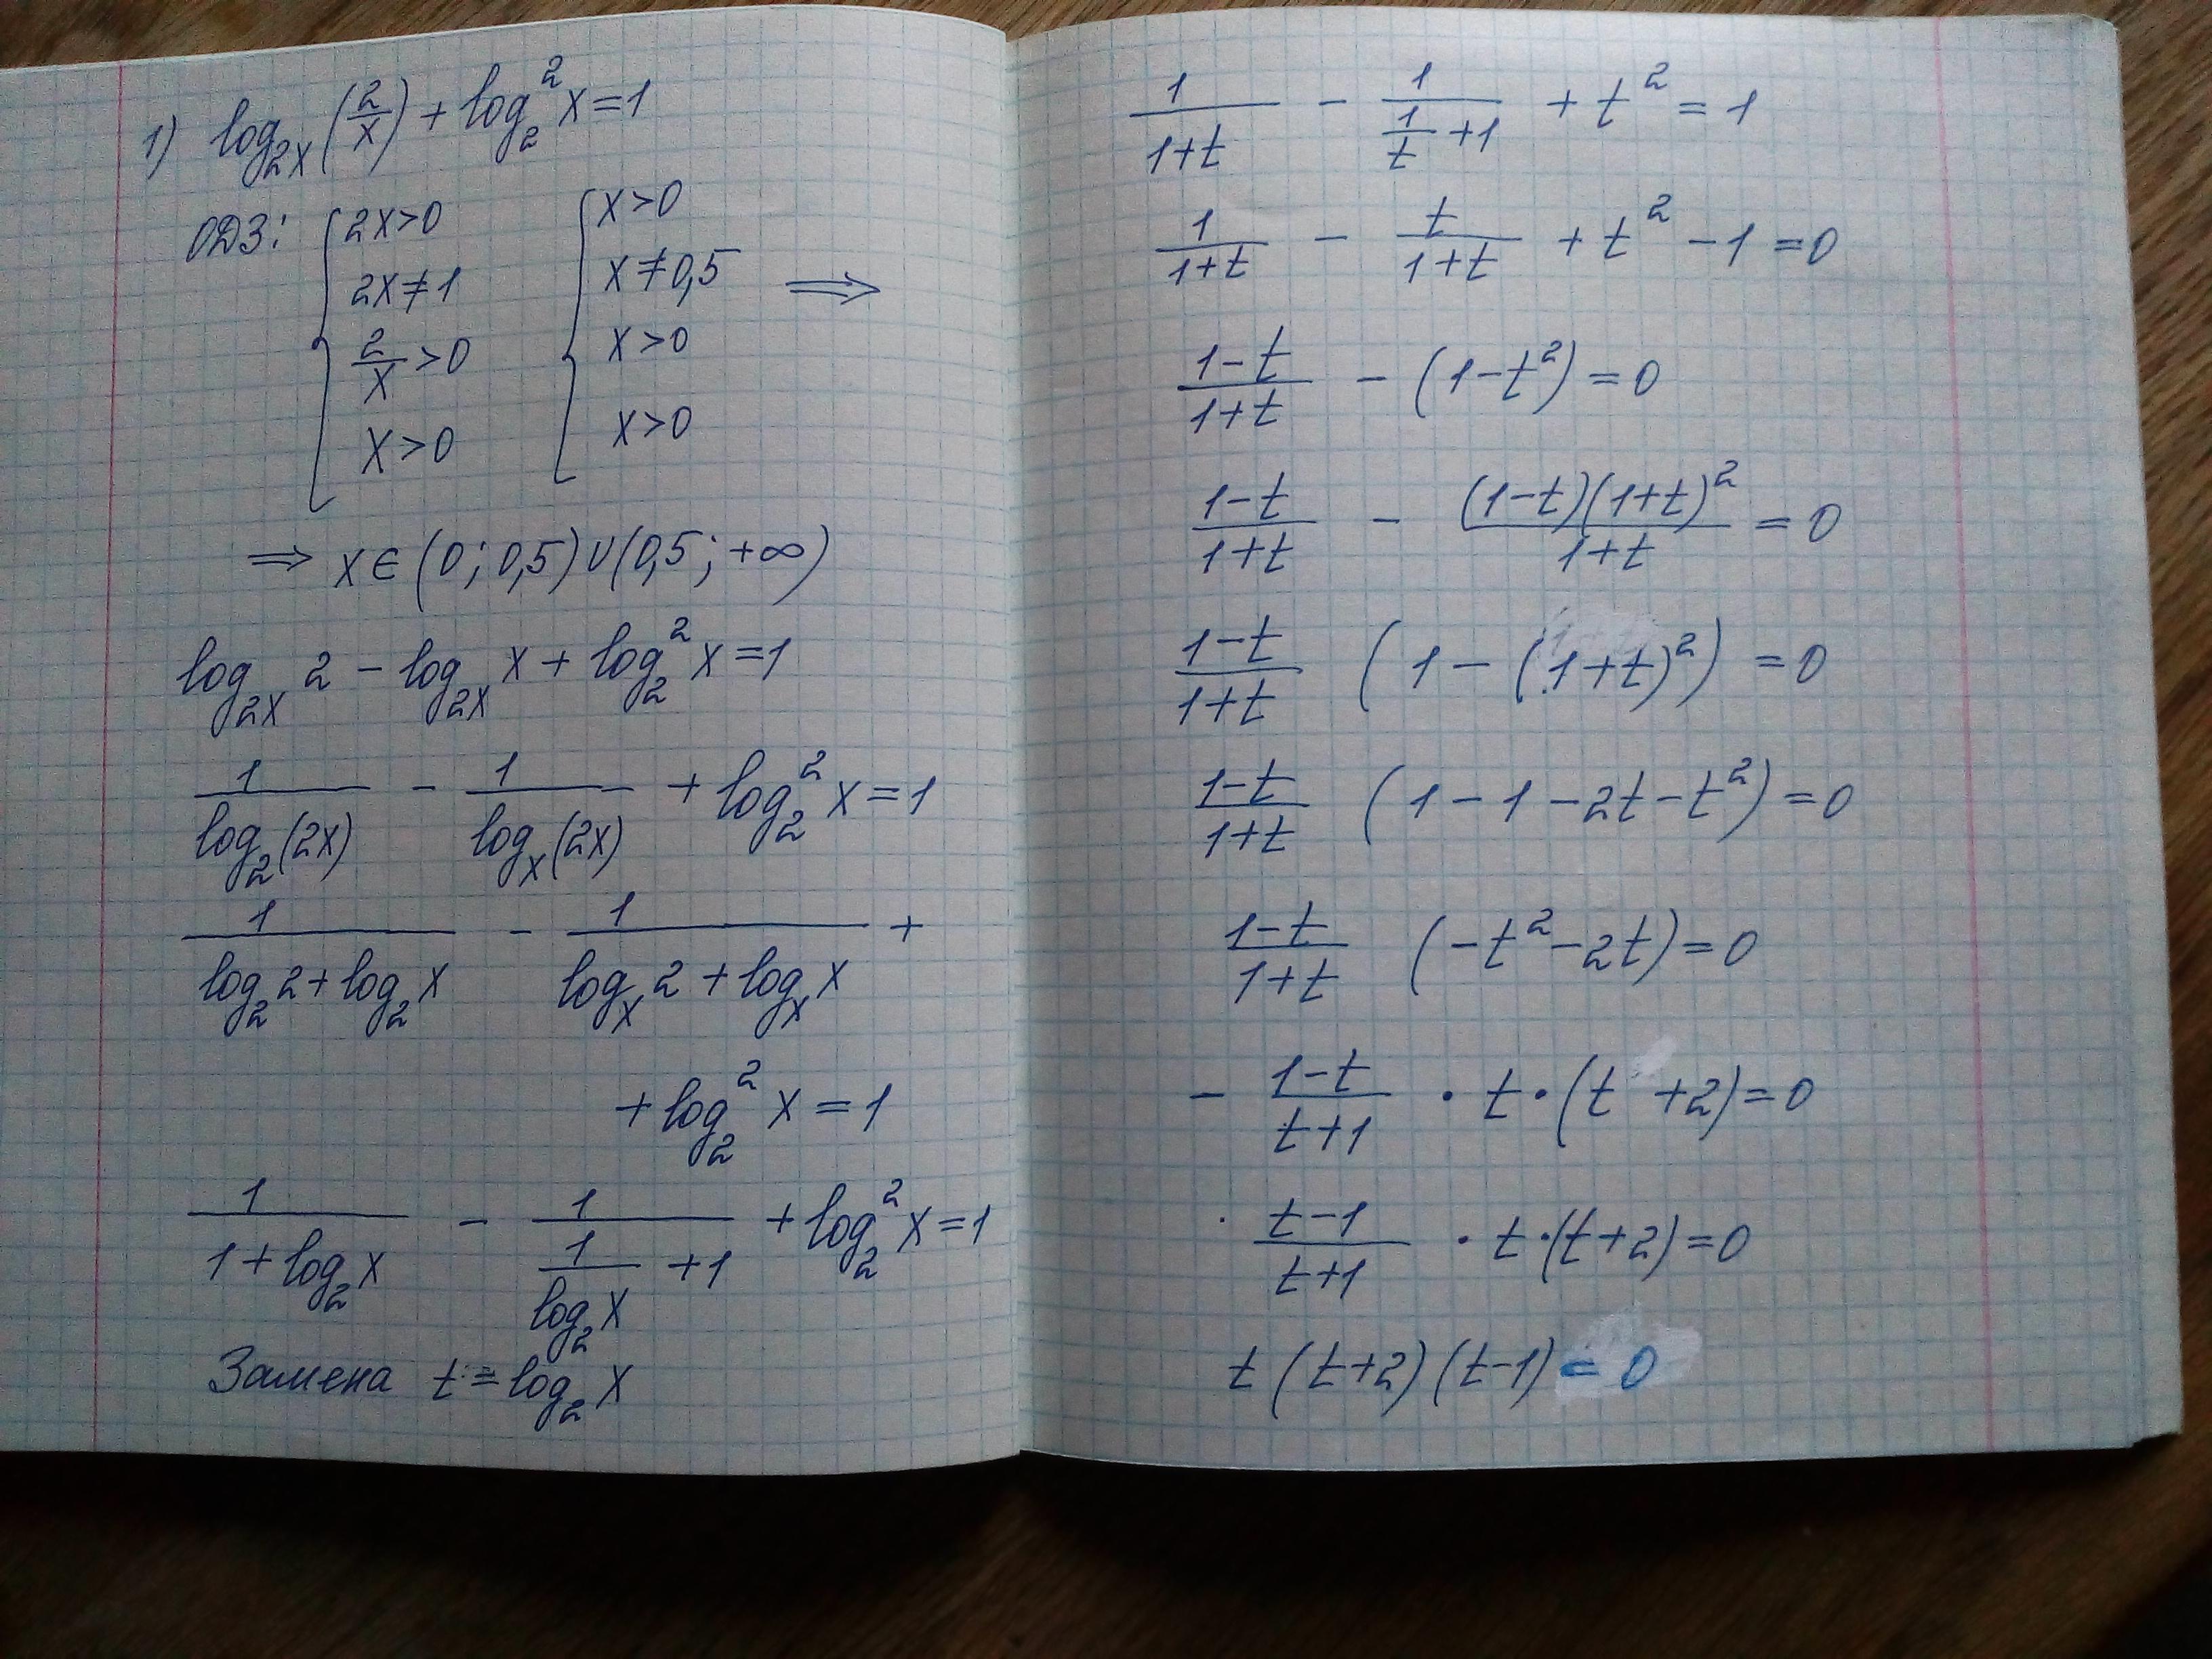 1) log_{2x}(2/x) + log_2^2 x = 1
ОДЗ: { 2x>0 { x>0
2x≠1 x≠0,5 ⟹
2/x>0 x>0
x>0 x>0
⟹ x∈(0; 0,5)∪(0,5; +∞)
log_{2x} 2 − log_{2x} x + log_2^2 x = 1
1/(log_2(2x)) − 1/(log_x(2x)) + log_2^2 x = 1
1/(log_2 2 + log_2 x) − 1/(log_x 2 + log_x x) +
+ log_2^2 x = 1
1/(1 + log_2 x) − 1/(1/(log_2 x) + 1) + log_2^2 x = 1
Замена t = log_2 x
1/(1+t) − 1/(1/t + 1) + t^2 = 1
1/(1+t) − t/(1+t) + t^2 − 1 = 0
(1−t)/(1+t) − (1−t^2) = 0
(1−t)/(1+t) − ((1−t)(1+t)^2)/(1+t) = 0
(1−t)/(1+t) (1 − (1+t)^2) = 0
(1−t)/(1+t) (1 − 1 − 2t − t^2) = 0
(1−t)/(1+t) (−t^2 − 2t) = 0
− (1−t)/(t+1) · t · (t + 2) = 0
(t−1)/(t+1) · t · (t+2) = 0
t (t+2) (t−1) = 0